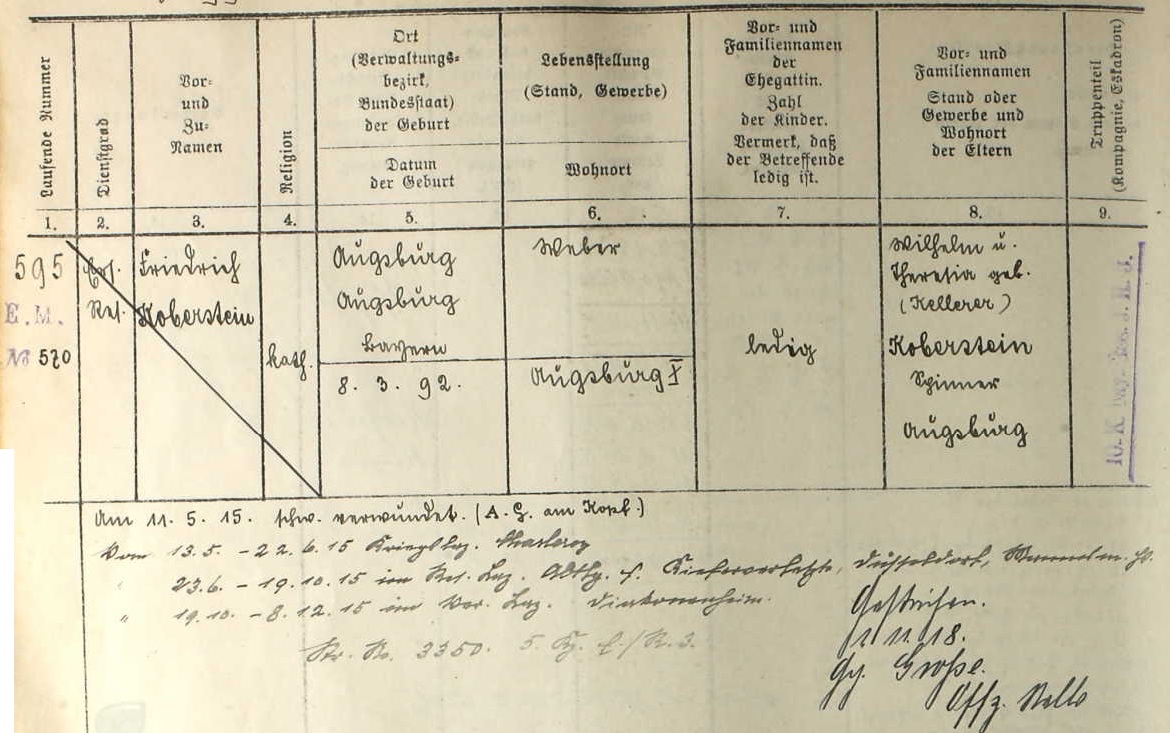 Laufende Nummer
Dienstgrad
Vor-
und
Zu-
Namen
Religion
Ort
(Verwaltungs-
bezirk,
Bundesstaat)
der Geburt
Datum
der Geburt
Lebensstellung
(Stand, Gewerbe)
Wohnort
Vor- und
Familiennamen
der
Ehegattin.
Zahl
der Kinder.
Vermerk, daß
der Betreffende
ledig ist.
Vor- und
Familiennamen
Stand oder
Gewerbe und
Wohnort
der Eltern
Truppenteil
(Kompagnie, Eskadron)
1. 2. 3. 4. 5. 6. 7. 8. 9.
595
E. M.
№ 570
Ers.
Res.
Friedrich
Koberstein
kath.
Augsburg
Augsburg
Bayern
8. 3. 92.
Weber
Augsburg X
ledig
Wilhelm u.
Theresia geb.
(Kellerer)
Koberstein
Spinner
Augsburg
10. K. bay. Res. J. R. 3.
Am 11. 5. 15. schw. verwundet. (A. G. am Kopf.)
Vom 13.5. - 22.6.15 Kriegslaz.
" 23.6. - 19.10.15 im Res. Laz. Abtlg. f. Kieferverletzte, Düsseldorf,
" 19.10. - 8.12.15 im Ver. Laz. Diakonenheim.
Kr. No. 3350. 5.
Gestrichen.
1. 11. 18.
Gz. Große.
Offz. Stello